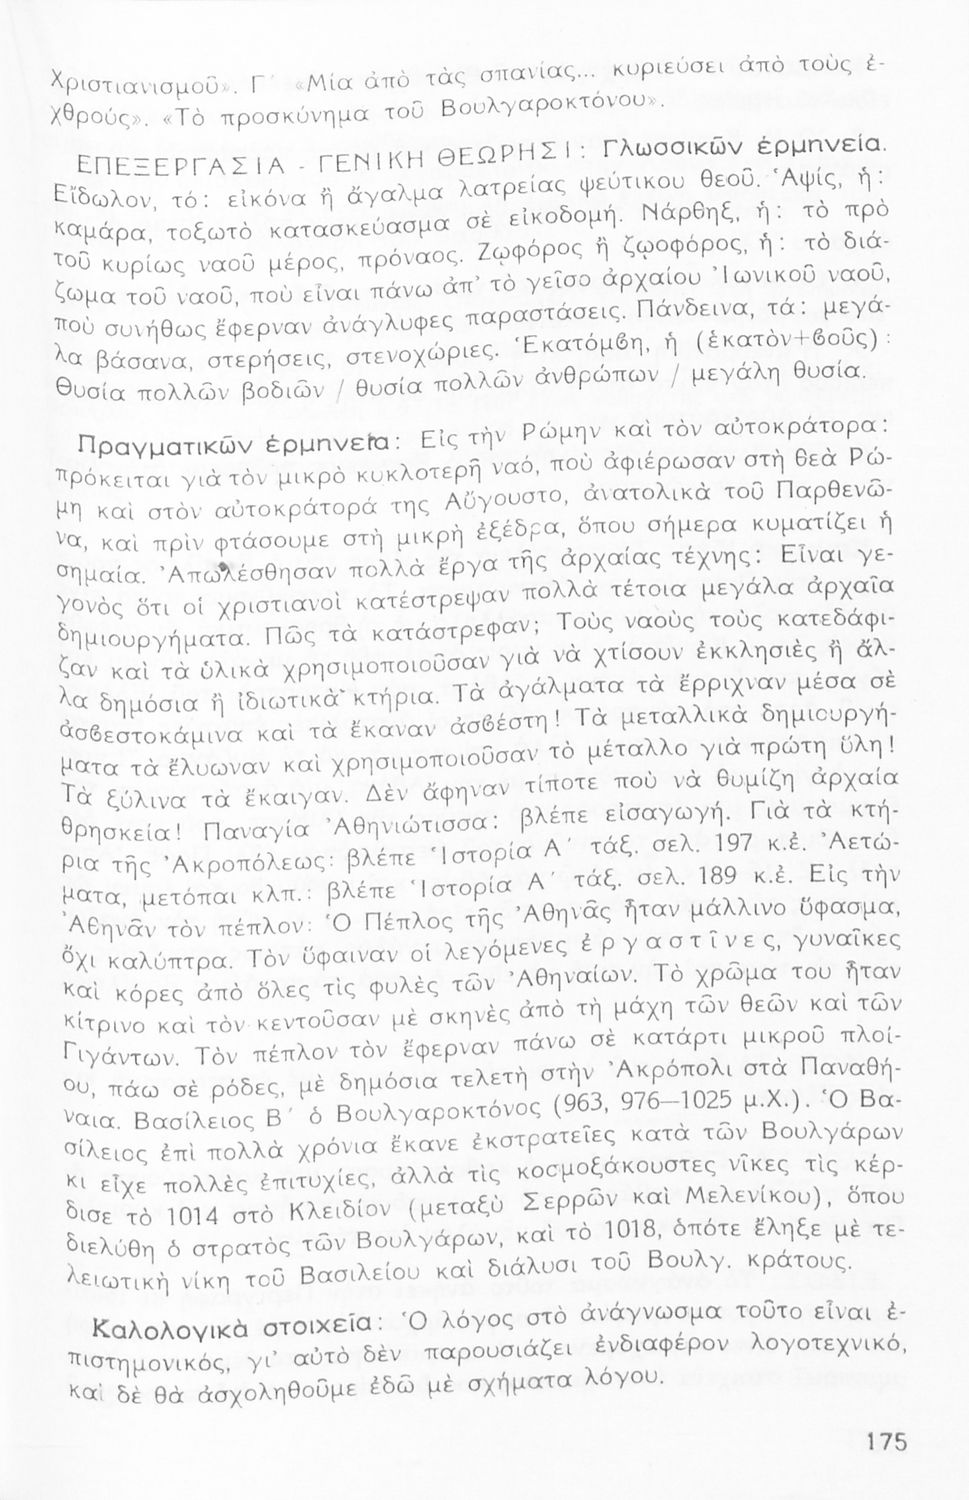 Χριστιανισμοῦ». Γ΄ «Μία ἀπὸ τὰς σπανίας... κυριεύσει ἀπὸ τοὺς ἐ-
χθρούς». «Τὸ προσκύνημα τοῦ Βουλγαροκτόνου».
ΕΠΕΞΕΡΓΑΣΙΑ - ΓΕΝΙΚΗ ΘΕΩΡΗΣΙ: Γλωσσικῶν ἑρμηνεία.
Εἴδωλον, τό: εἰκόνα ἢ ἄγαλμα λατρείας ψεύτικου θεοῦ. Ἁψίς, ἡ:
καμάρα, τοξωτὸ κατασκεύασμα σὲ εἰκοδομή. Νάρθηξ, ἡ: τὸ πρὸ
τοῦ κυρίως ναοῦ μέρος, πρόναος. Ζῳφόρος ἢ ζῳοφόρος, ἡ: τὸ διά-
ζωμα τοῦ ναοῦ, ποὺ εἶναι πάνω ἀπ' τὸ γεῖσο ἀρχαίου Ἰωνικοῦ ναοῦ,
ποὺ συνήθως ἔφερναν ἀνάγλυφες παραστάσεις. Πάνδεινα, τά: μεγά-
λα βάσανα, στερήσεις, στενοχώριες. Ἑκατόμβη, ἡ (ἑκατὸν+βοῦς):
Θυσία πολλῶν βοδιῶν / θυσία πολλῶν ἀνθρώπων / μεγάλη θυσία.
Πραγματικῶν ἑρμηνεία: Εἰς τὴν Ρώμην καὶ τὸν αὐτοκράτορα:
πρόκειται γιὰ τὸν μικρὸ κυκλοτερῆ ναό, ποὺ ἀφιέρωσαν στὴ θεὰ Ρώ-
μη καὶ στὸν αὐτοκράτορά της Αὔγουστο, ἀνατολικὰ τοῦ Παρθενῶ-
να, καὶ πρὶν φτάσουμε στὴ μικρὴ ἐξέδρα, ὅπου σήμερα κυματίζει ἡ
σημαία. Ἀπωλέσθησαν πολλὰ ἔργα τῆς ἀρχαίας τέχνης: Εἶναι γε-
γονὸς ὅτι οἱ χριστιανοὶ κατέστρεψαν πολλὰ τέτοια μεγάλα ἀρχαῖα
δημιουργήματα. Πῶς τὰ κατάστρεφαν; Τοὺς ναοὺς τοὺς κατεδάφι-
ζαν καὶ τὰ ὑλικὰ χρησιμοποιοῦσαν γιὰ νὰ χτίσουν ἐκκλησιὲς ἢ ἄλ-
λα δημόσια ἢ ἰδιωτικὰ κτήρια. Τὰ ἀγάλματα τὰ ἔρριχναν μέσα σὲ
ἀσβεστοκάμινα καὶ τὰ ἔκαναν ἀσβέστη! Τὰ μεταλλικὰ δημιουργή-
ματα τὰ ἔλυωναν καὶ χρησιμοποιοῦσαν τὸ μέταλλο γιὰ πρώτη ὕλη!
Τὰ ξύλινα τὰ ἔκαιγαν. Δὲν ἄφηναν τίποτε ποὺ νὰ θυμίζη ἀρχαία
θρησκεία! Παναγία Ἀθηνιώτισσα: βλέπε εἰσαγωγή. Γιὰ τὰ κτή-
ρια τῆς Ἀκροπόλεως: βλέπε Ἱστορία Α΄ τάξ. σελ. 197 κ.ἑ. Ἀετώ-
ματα, μετόπαι κλπ.: βλέπε Ἱστορία Α΄ τάξ. σελ. 189 κ.ἑ. Εἰς τὴν
Ἀθηνᾶν τὸν πέπλον: Ὁ Πέπλος τῆς Ἀθηνᾶς ἦταν μάλλινο ὕφασμα,
ὄχι καλύπτρα. Τὸν ὕφαιναν οἱ λεγόμενες ἐργαστῖνες, γυναῖκες
καὶ κόρες ἀπὸ ὅλες τὶς φυλὲς τῶν Ἀθηναίων. Τὸ χρῶμα του ἦταν
κίτρινο καὶ τὸν κεντοῦσαν μὲ σκηνὲς ἀπὸ τὴ μάχη τῶν θεῶν καὶ τῶν
Γιγάντων. Τὸν πέπλον τὸν ἔφερναν πάνω σὲ κατάρτι μικροῦ πλοί-
ου, πάω σὲ ρόδες, μὲ δημόσια τελετὴ στὴν Ἀκρόπολι στὰ Παναθή-
ναια. Βασίλειος Β΄ ὁ Βουλγαροκτόνος (963, 976—1025 μ.Χ.). Ὁ Βα-
σίλειος ἐπὶ πολλὰ χρόνια ἔκανε ἐκστρατεῖες κατὰ τῶν Βουλγάρων
κι εἶχε πολλὲς ἐπιτυχίες, ἀλλὰ τὶς κοσμοξάκουστες νῖκες τὶς κέρ-
δισε τὸ 1014 στὸ Κλειδίον (μεταξὺ Σερρῶν καὶ Μελενίκου), ὅπου
διελύθη ὁ στρατὸς τῶν Βουλγάρων, καὶ τὸ 1018, ὁπότε ἔληξε μὲ τε-
λειωτικὴ νίκη τοῦ Βασιλείου καὶ διάλυσι τοῦ Βουλγ. κράτους.
Καλολογικὰ στοιχεῖα: Ὁ λόγος στὸ ἀνάγνωσμα τοῦτο εἶναι ἐ-
πιστημονικός, γι' αὐτὸ δὲν παρουσιάζει ἐνδιαφέρον λογοτεχνικό,
καὶ δὲ θὰ ἀσχοληθοῦμε ἐδῶ μὲ σχήματα λόγου.
175